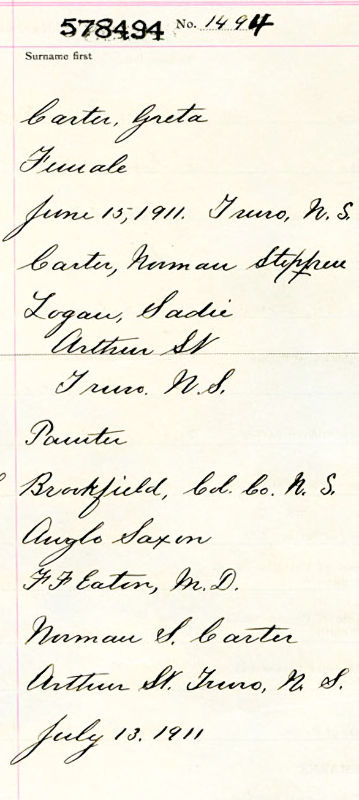 578494 No. 1494
Surname first
Carter, Greta
Female
June 15, 1911. Truro, N.S.
Carter, Norman Stephen
Logan, Sadie
Arthur St
Truro. N.S.
Painter
Brookfield, Col. Co. N. S.
Anglo Saxon
F F Eaton, M.D.
Norman S. Carter
Arthur St. Truro, N. S.
July 13. 1911